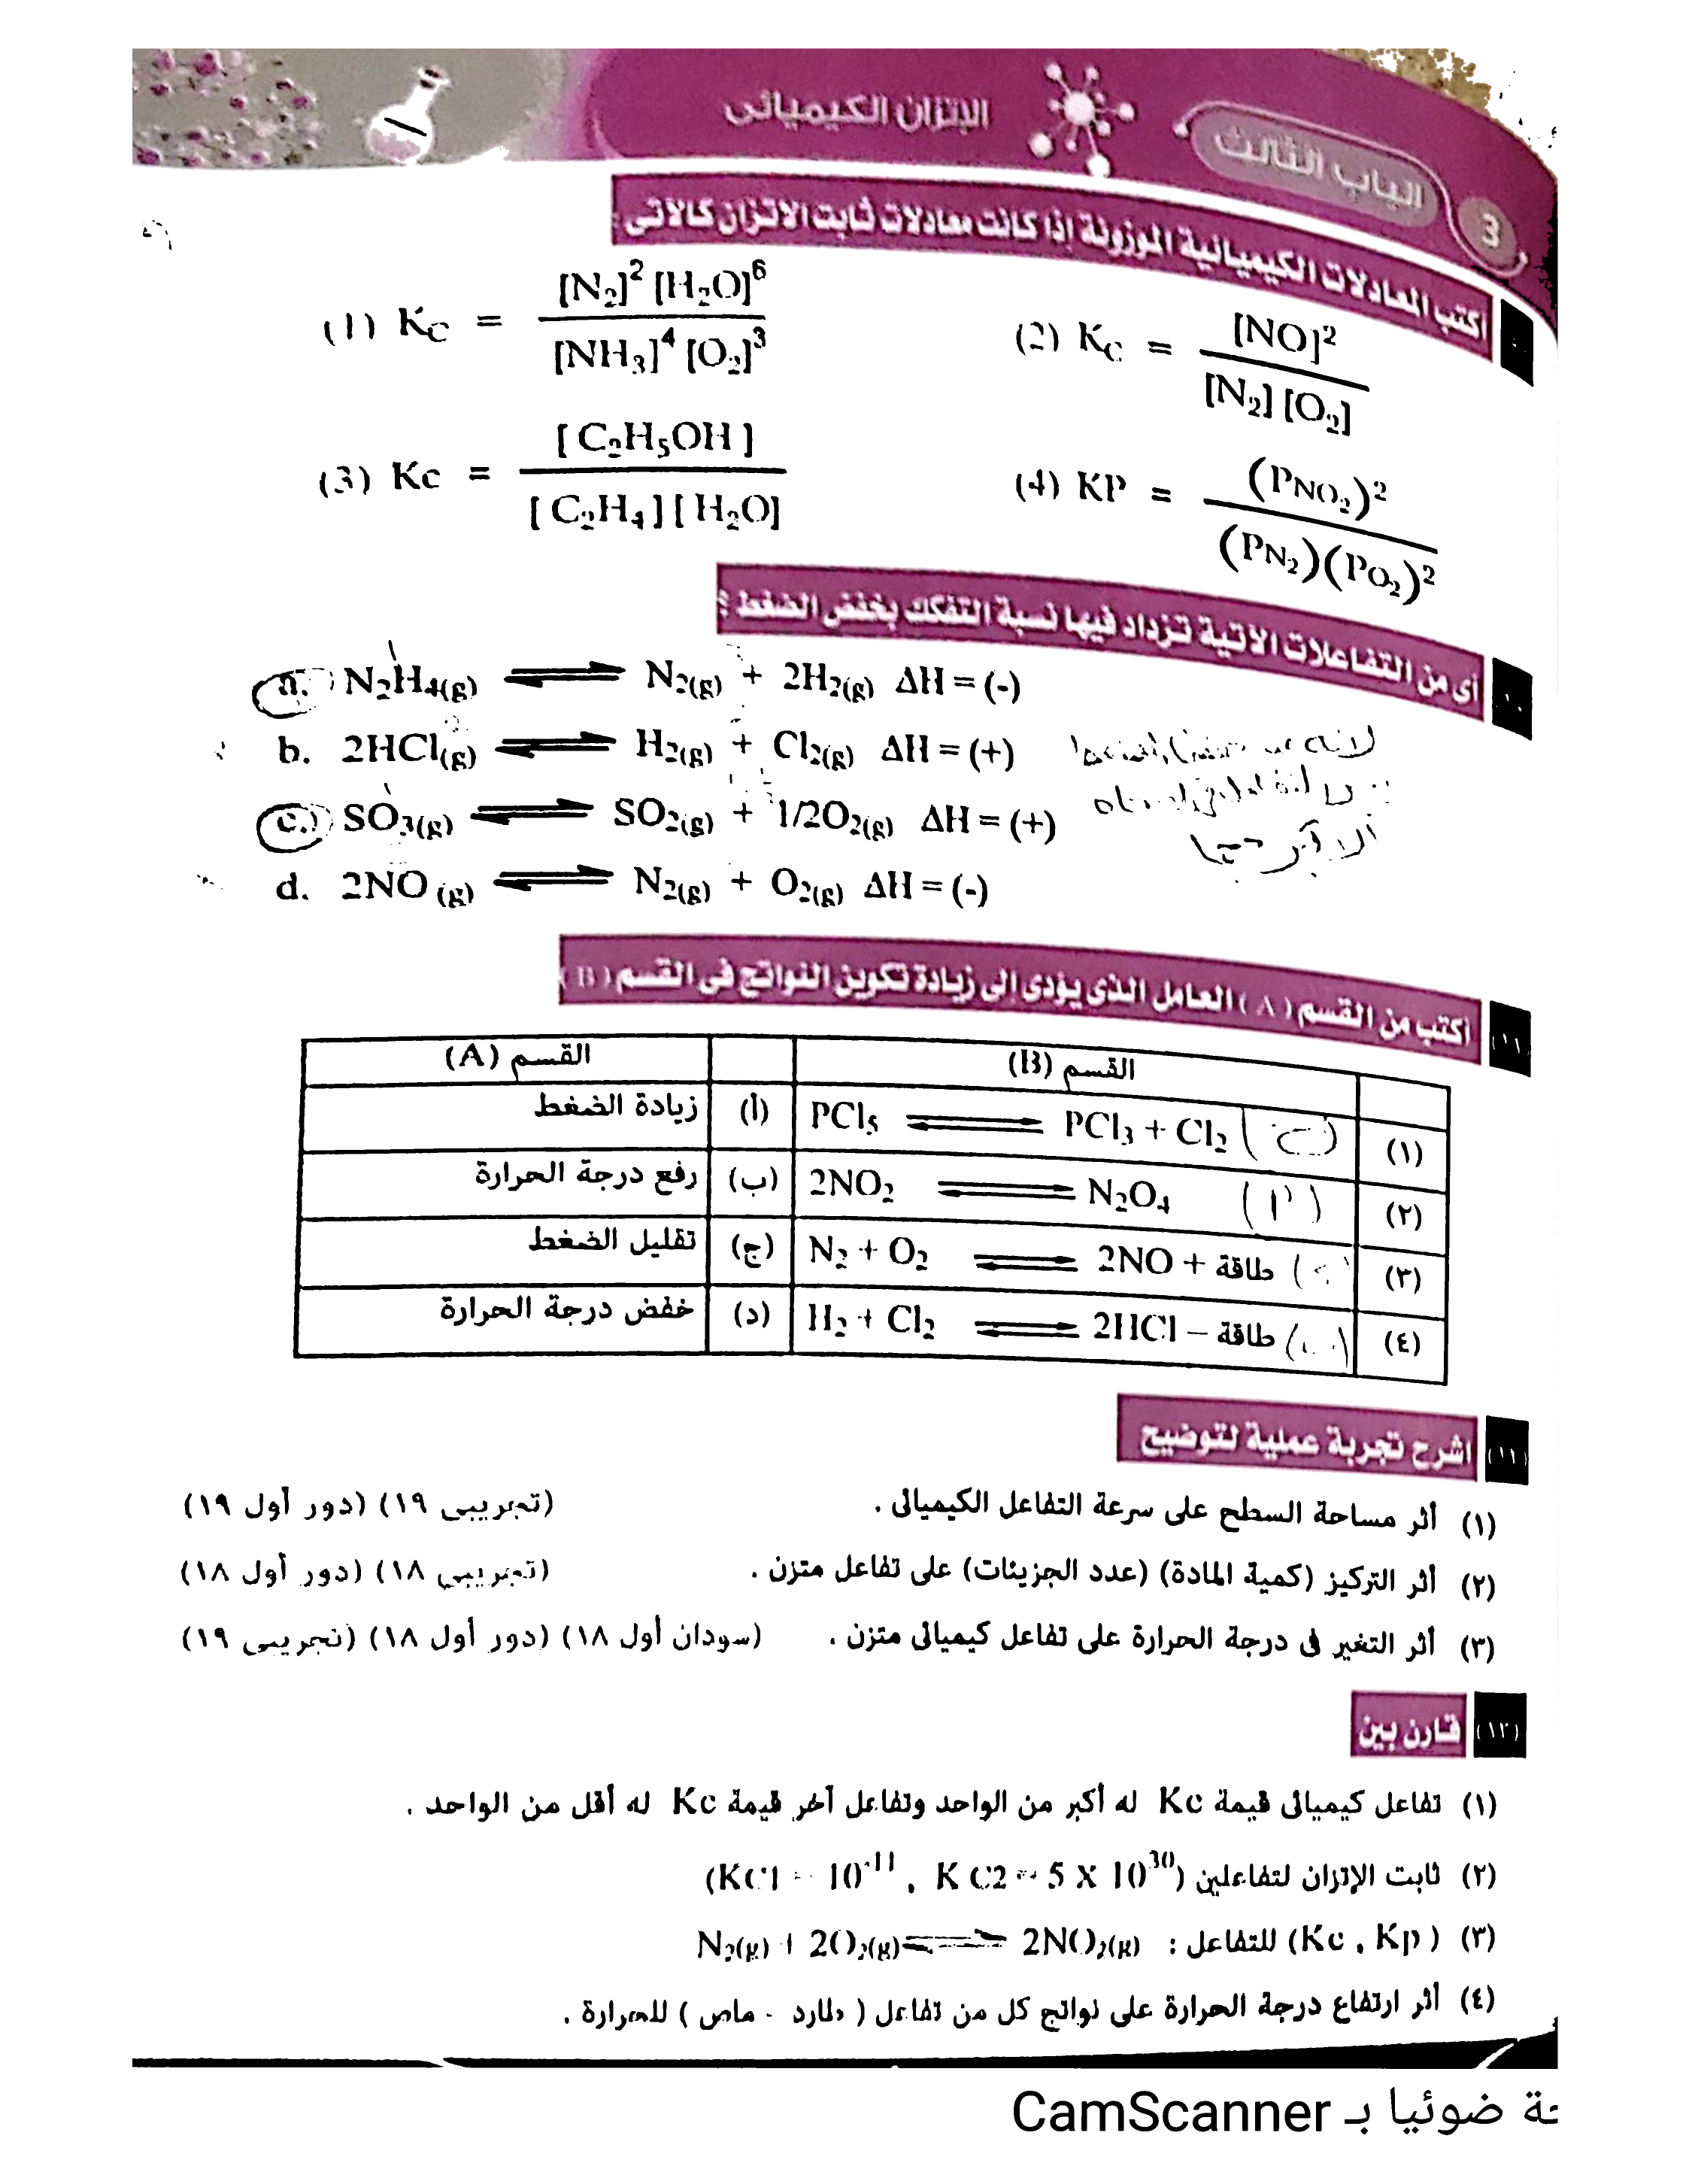 الباب الثالث
3
الإتزان الكيميائى
اكتب المعادلات الكيميائية الموزونة إذا كانت معادلات ثابت الاتزان كالاتى :
(1) Kc = [N₂]² [H₂O]⁶ / [NH₃]⁴ [O₂]³
(2) Kc = [NO]² / [N₂] [O₂]
(3) Kc = [ C₂H₅OH ] / [ C₂H₄ ] [ H₂O]
(4) KP = (PNO₂)² / (PN₂)(PO₂)²
أى من التفاعلات الآتية تزداد فيها نسبة التفكك بخفض الضغط ؟
a. N₂H₄(g) ⇌ N₂(g) + 2H₂(g) ΔH = (-)
b. 2HCl(g) ⇌ H₂(g) + Cl₂(g) ΔH = (+)
c. SO₃(g) ⇌ SO₂(g) + 1/2O₂(g) ΔH = (+)
d. 2NO (g) ⇌ N₂(g) + O₂(g) ΔH = (-)
الاكبر حجما
(١١) اكتب من القسم ( A ) العامل الذى يؤدى إلى زيادة تكوين النواتج فى القسم ( B )
القسم (B) القسم (A)
(١) PCl₅ ⇌ PCl₃ + Cl₂ (ج) (أ) زيادة الضغط
(٢) 2NO₂ ⇌ N₂O₄ (أ) (ب) رفع درجة الحرارة
(٣) N₂ + O₂ ⇌ 2NO + طاقة (ج) تقليل الضغط
(٤) H₂ + Cl₂ ⇌ 2HCl – طاقة (د) خفض درجة الحرارة
(١٢) اشرح تجربة عملية لتوضيح
(١) أثر مساحة السطح على سرعة التفاعل الكيميائى . (تجريبى ١٩) (دور أول ١٩)
(٢) أثر التركيز (كمية المادة) (عدد الجزيئات) على تفاعل متزن . (تجريبى ١٨) (دور أول ١٨)
(٣) أثر التغير فى درجة الحرارة على تفاعل كيميائى متزن . (سودان أول ١٨) (دور أول ١٨) (تجريبى ١٩)
(١٣) قارن بين
(١) تفاعل كيميائى قيمة Kc له أكبر من الواحد وتفاعل آخر قيمة Kc له أقل من الواحد .
(٢) ثابت الإتزان لتفاعلين (KC1 = 10⁻¹¹ , K C2 = 5 X 10³⁰)
(٣) ( Kc , Kp ) للتفاعل : N₂(g) + 2O₂(g) ⇌ 2NO₂(g)
(٤) أثر ارتفاع درجة الحرارة على نواتج كل من تفاعل ( طارد - ماص ) للحرارة .
ضوئيا بـ CamScanner